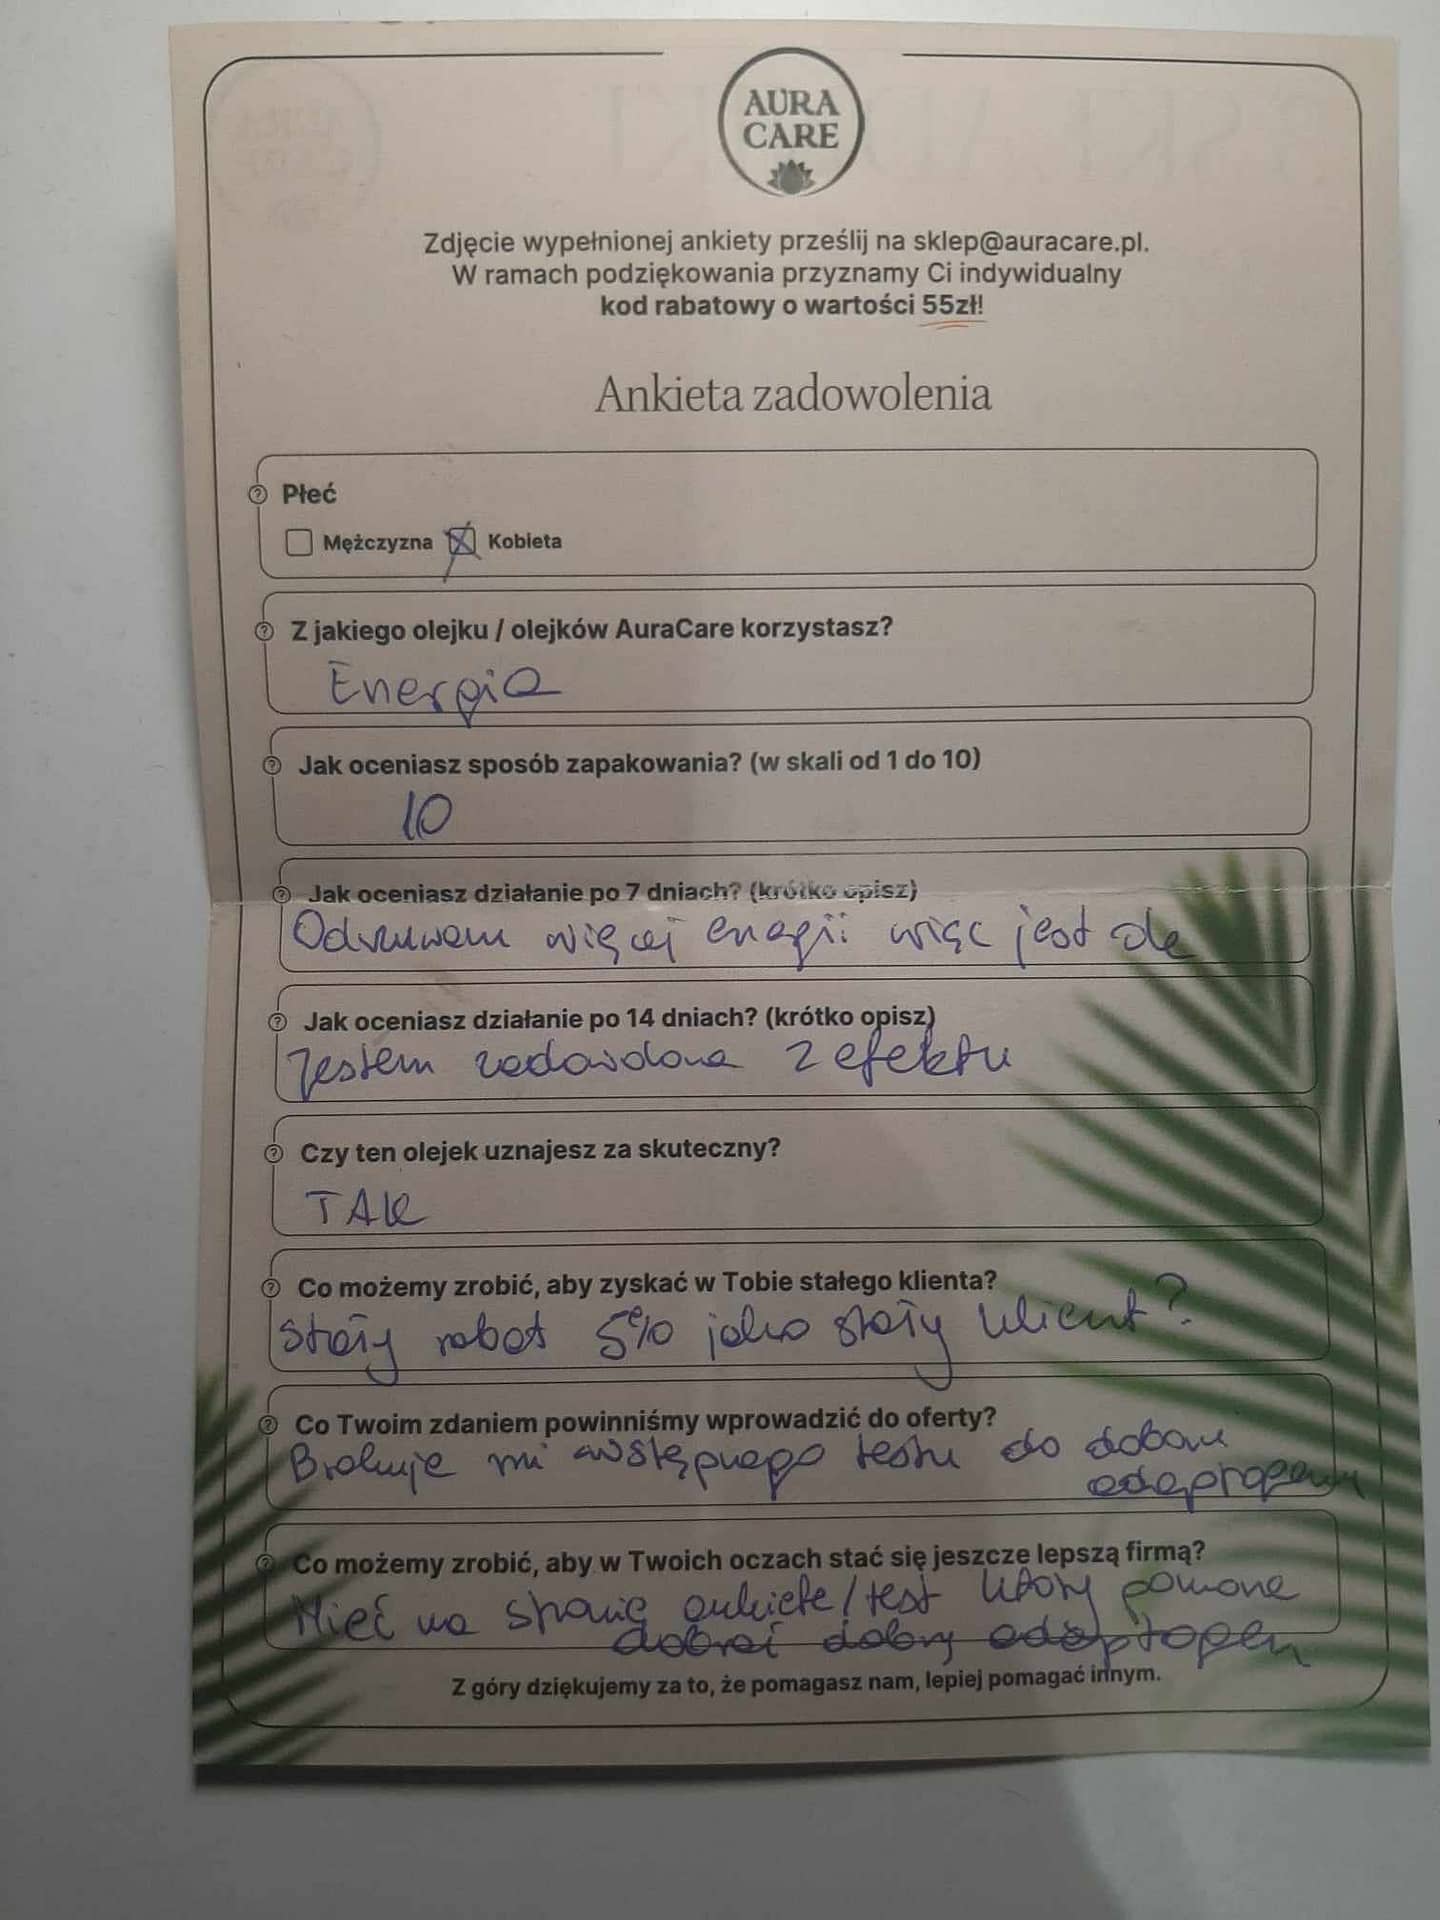 AURA
CARE
Zdjęcie wypełnionej ankiety prześlij na sklep@auracare.pl.
W ramach podziękowania przyznamy Ci indywidualny
kod rabatowy o wartości 55zł!
Ankieta zadowolenia
Płeć
Mężczyzna Kobieta
Z jakiego olejku / olejków AuraCare korzystasz?
Energia
Jak oceniasz sposób zapakowania? (w skali od 1 do 10)
10
Jak oceniasz działanie po 7 dniach? (krótko opisz)
Odczuwam więcej energii więc jest
Jak oceniasz działanie po 14 dniach? (krótko opisz)
Jestem zadowolona z efektu
Czy ten olejek uznajesz za skuteczny?
TAK
Co możemy zrobić, aby zyskać w Tobie stałego klienta?
Stały rabat 5% jako stały klient?
Co Twoim zdaniem powinniśmy wprowadzić do oferty?
Brakuje mi wstępnego testu do doboru
adaptogenu
Co możemy zrobić, aby w Twoich oczach stać się jeszcze lepszą firmą?
Mieć na stronie ankietę/test który pomoże
dobrać dobry adaptogen
Z góry dziękujemy za to, że pomagasz nam, lepiej pomagać innym.